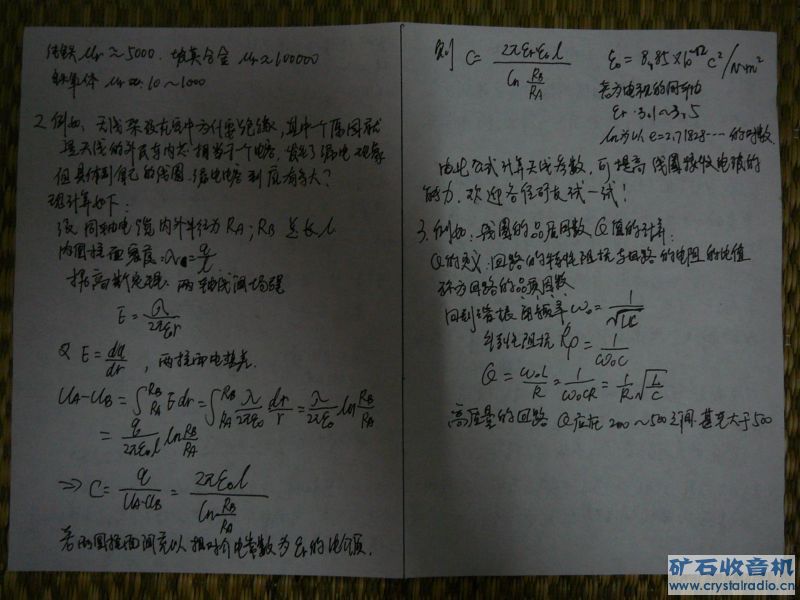 纯铁 μr≈5000. 坡莫合金 μr≈100000
铁氧体 μr≈ 10~1000
2. 例如: 天线架设在空中为什么要绝缘, 其中一个原因就
是天线的外皮与内芯相当于一个电容, 发生了漏电现象
但具体到自己的线圈. 漏电电容到底有多大?
现计算如下:
设同轴电缆内外半径为 RA; RB 总长 l
内圆柱面密度: λ=q/l
据高斯定理: 两轴线间场强
E = λ/2πεr
又 E = du/dr , 两柱面电势差.
UA-UB = ∫RA RB Edr = ∫RA RB λ/2πε₀ dr/r = λ/2πε₀ ln RB/RA
= q/2πε₀l ln RB/RA
⇒ C = q/UA-UB = 2πε₀l / ln RB/RA
若两圆柱面间充以相对介电常数为 εr 的电介质.
则 C = 2πεrε₀l / ln RB/RA ε₀ = 8.85×10⁻¹² C²/N·m²
εr 3.1~3.5
ln为以 e=2.71828…… 的对数.
由此公式计算天线参数, 可提高线圈接收电磁的
能力. 欢迎各位矿友试一试!
3. 例如: 线圈的品质因数, Q值的计算:
Q的定义: 回路的特性阻抗与回路的电阻的比值
称为回路的品质因数
回到谐振的频率 ω₀ = 1/√LC
特性阻抗 Rρ = 1/ω₀C
Q = ω₀L/R = 1/ω₀CR = 1/R √L/C
高质量的回路 Q应在 200~500之间. 甚至大于500
矿石收音机
www.crystalradio.cn